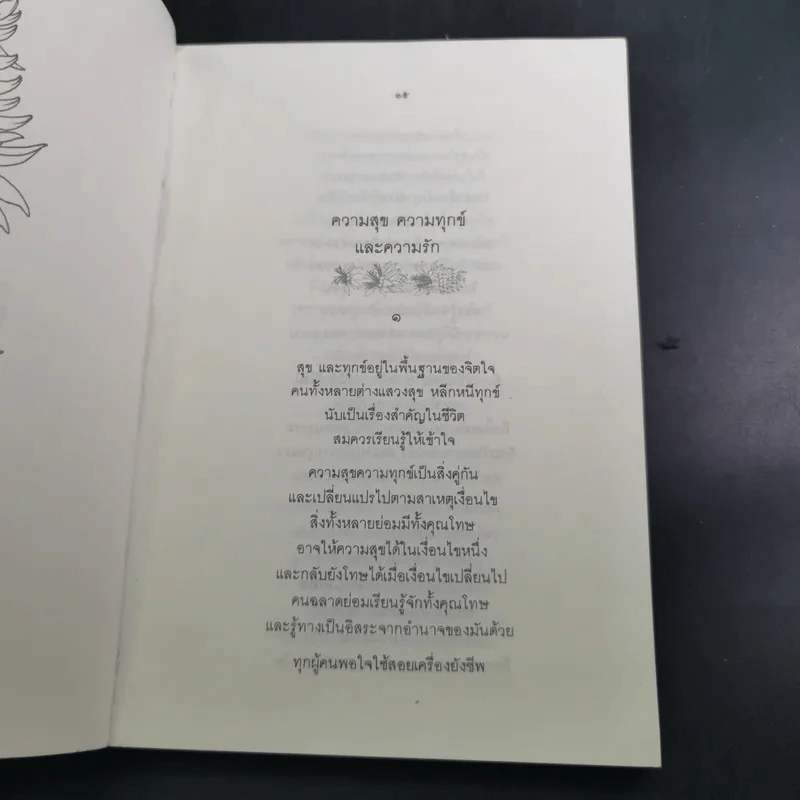 ๑๕
ความสุข ความทุกข์
และความรัก
๑
สุข และทุกข์อยู่ในพื้นฐานของจิตใจ
คนทั้งหลายต่างแสวงสุข หลีกหนีทุกข์
นับเป็นเรื่องสำคัญในชีวิต
สมควรเรียนรู้ให้เข้าใจ
ความสุขความทุกข์เป็นสิ่งคู่กัน
และเปลี่ยนแปรไปตามสาเหตุเงื่อนไข
สิ่งทั้งหลายย่อมมีทั้งคุณโทษ
อาจให้ความสุขได้ในเงื่อนไขหนึ่ง
และกลับยังโทษได้เมื่อเงื่อนไขเปลี่ยนไป
คนฉลาดย่อมเรียนรู้จักทั้งคุณโทษ
และรู้ทางเป็นอิสระจากอำนาจของมันด้วย
ทุกผู้คนพอใจใช้สอยเครื่องยังชีพ